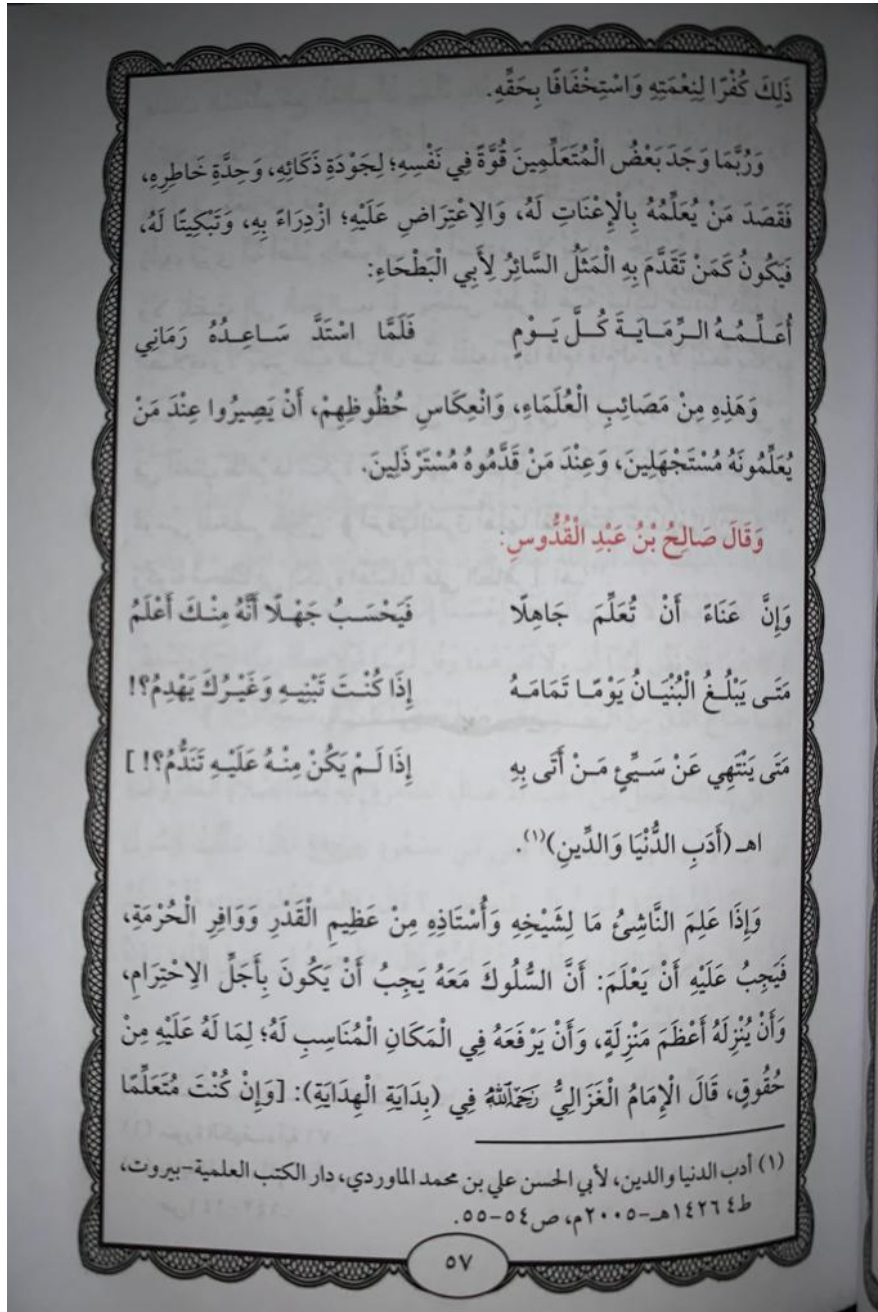 ذَلِكَ كُفْرًا لِنِعْمَتِهِ وَاسْتِخْفَافًا بِحَقِّهِ.
وَرُبَّمَا وَجَدَ بَعْضُ الْمُتَعَلِّمِينَ قُوَّةً فِي نَفْسِهِ؛ لِجَوْدَةِ ذَكَائِهِ، وَحِدَّةِ خَاطِرِهِ،
فَقَصَدَ مَنْ يُعَلِّمُهُ بِالْإِعْنَاتِ لَهُ، وَالِاعْتِرَاضِ عَلَيْهِ؛ ازْدِرَاءً بِهِ، وَتَبْكِيتًا لَهُ،
فَيَكُونُ كَمَنْ تَقَدَّمَ بِهِ الْمَثَلُ السَّائِرُ لِأَبِي الْبَطْحَاءِ:
أُعَلِّمُهُ الرِّمَايَةَ كُلَّ يَوْمٍ فَلَمَّا اسْتَدَّ سَاعِدُهُ رَمَانِي
وَهَذِهِ مِنْ مَصَائِبِ الْعُلَمَاءِ، وَانْعِكَاسِ حُظُوظِهِمْ، أَنْ يَصِيرُوا عِنْدَ مَنْ
يُعَلِّمُونَهُ مُسْتَجْهَلِينَ، وَعِنْدَ مَنْ قَدَّمُوهُ مُسْتَرْذَلِينَ.
وَقَالَ صَالِحُ بْنُ عَبْدِ الْقُدُّوسِ:
وَإِنَّ عَنَاءً أَنْ تُعَلِّمَ جَاهِلًا فَيَحْسَبُ جَهْلًا أَنَّهُ مِنْكَ أَعْلَمُ
مَتَى يَبْلُغُ الْبُنْيَانُ يَوْمًا تَمَامَهُ إِذَا كُنْتَ تَبْنِيهِ وَغَيْرُكَ يَهْدِمُ؟!
مَتَى يَنْتَهِي عَنْ سَيِّئٍ مَنْ أَتَى بِهِ إِذَا لَمْ يَكُنْ مِنْهُ عَلَيْهِ تَنَدُّمُ؟! ]
اهـ (أَدَبِ الدُّنْيَا وَالدِّينِ)(١).
وَإِذَا عَلِمَ النَّاشِئُ مَا لِشَيْخِهِ وَأُسْتَاذِهِ مِنْ عَظِيمِ الْقَدْرِ وَوَافِرِ الْحُرْمَةِ،
فَيَجِبُ عَلَيْهِ أَنْ يَعْلَمَ: أَنَّ السُّلُوكَ مَعَهُ يَجِبُ أَنْ يَكُونَ بِأَجَلِّ الِاحْتِرَامِ،
وَأَنْ يُنْزِلَهُ أَعْظَمَ مَنْزِلَةٍ، وَأَنْ يَرْفَعَهُ فِي الْمَكَانِ الْمُنَاسِبِ لَهُ؛ لِمَا لَهُ عَلَيْهِ مِنْ
حُقُوقٍ، قَالَ الْإِمَامُ الْغَزَالِيُّ رَحِمَهُ اللَّهُ فِي (بِدَايَةِ الْهِدَايَةِ): [وَإِنْ كُنْتَ مُتَعَلِّمًا
(١) أدب الدنيا والدين، لأبي الحسن علي بن محمد الماوردي، دار الكتب العلمية-بيروت،
ط٤ ١٤٢٦هـ-٢٠٠٥م، ص٥٤-٥٥.
٥٧